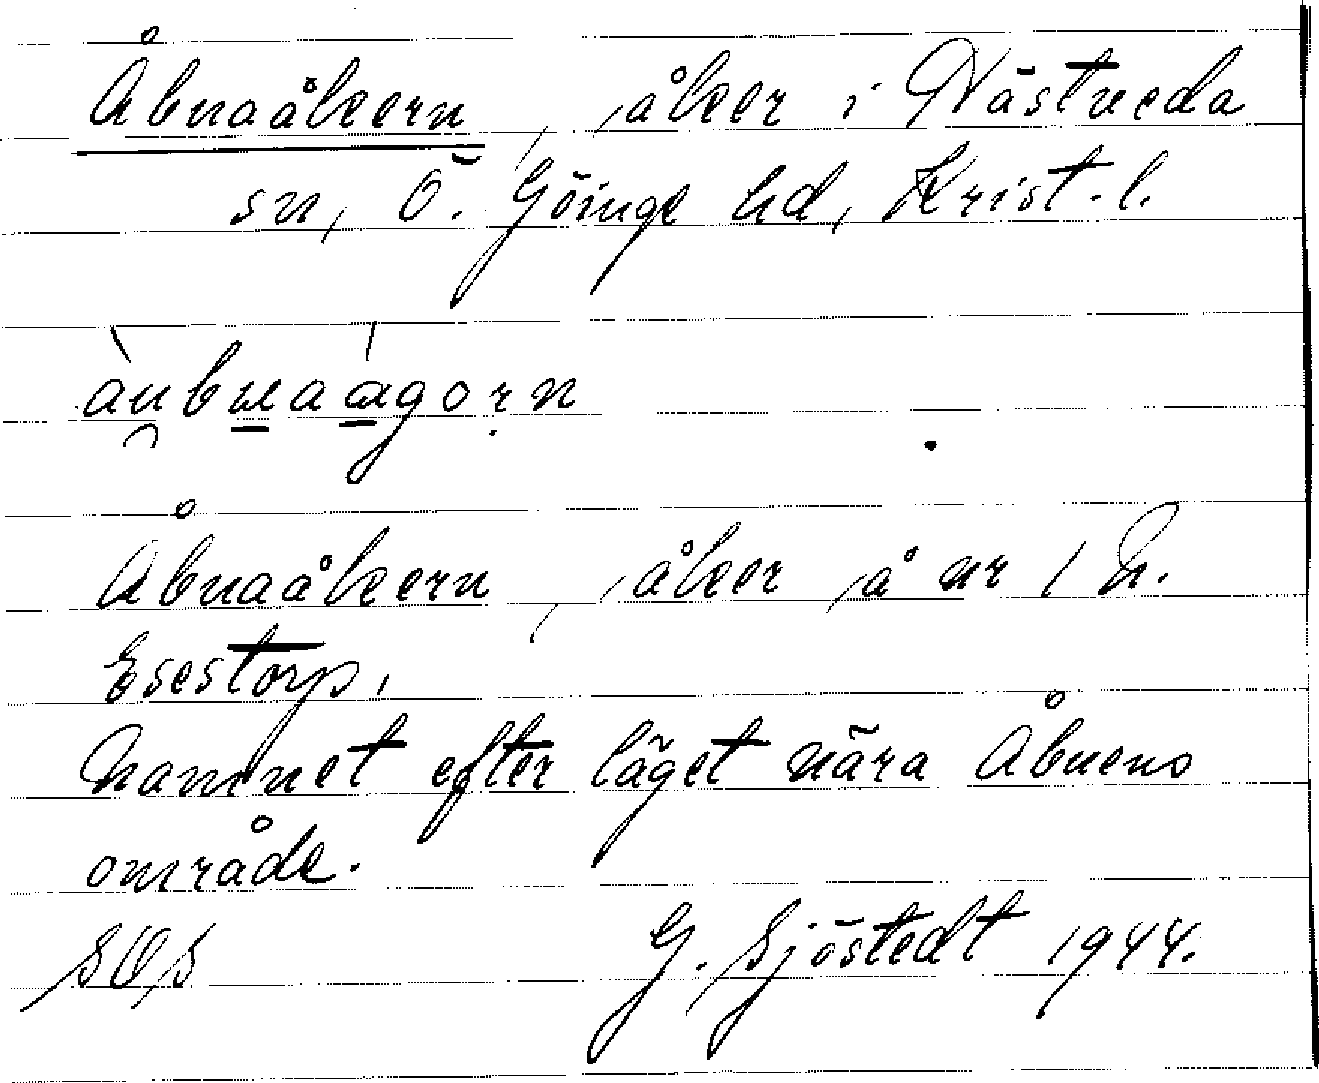 Åbnaåkern, åker i Nästreda
sn, Ö. Göinge hd, Krist. l.
àubnaágorn
Åbnaåkern, åker å nr 1 N.
Esestorp.
Namnet efter läget nära Åbnens
område.
SOS G. Sjöstedt 1944.